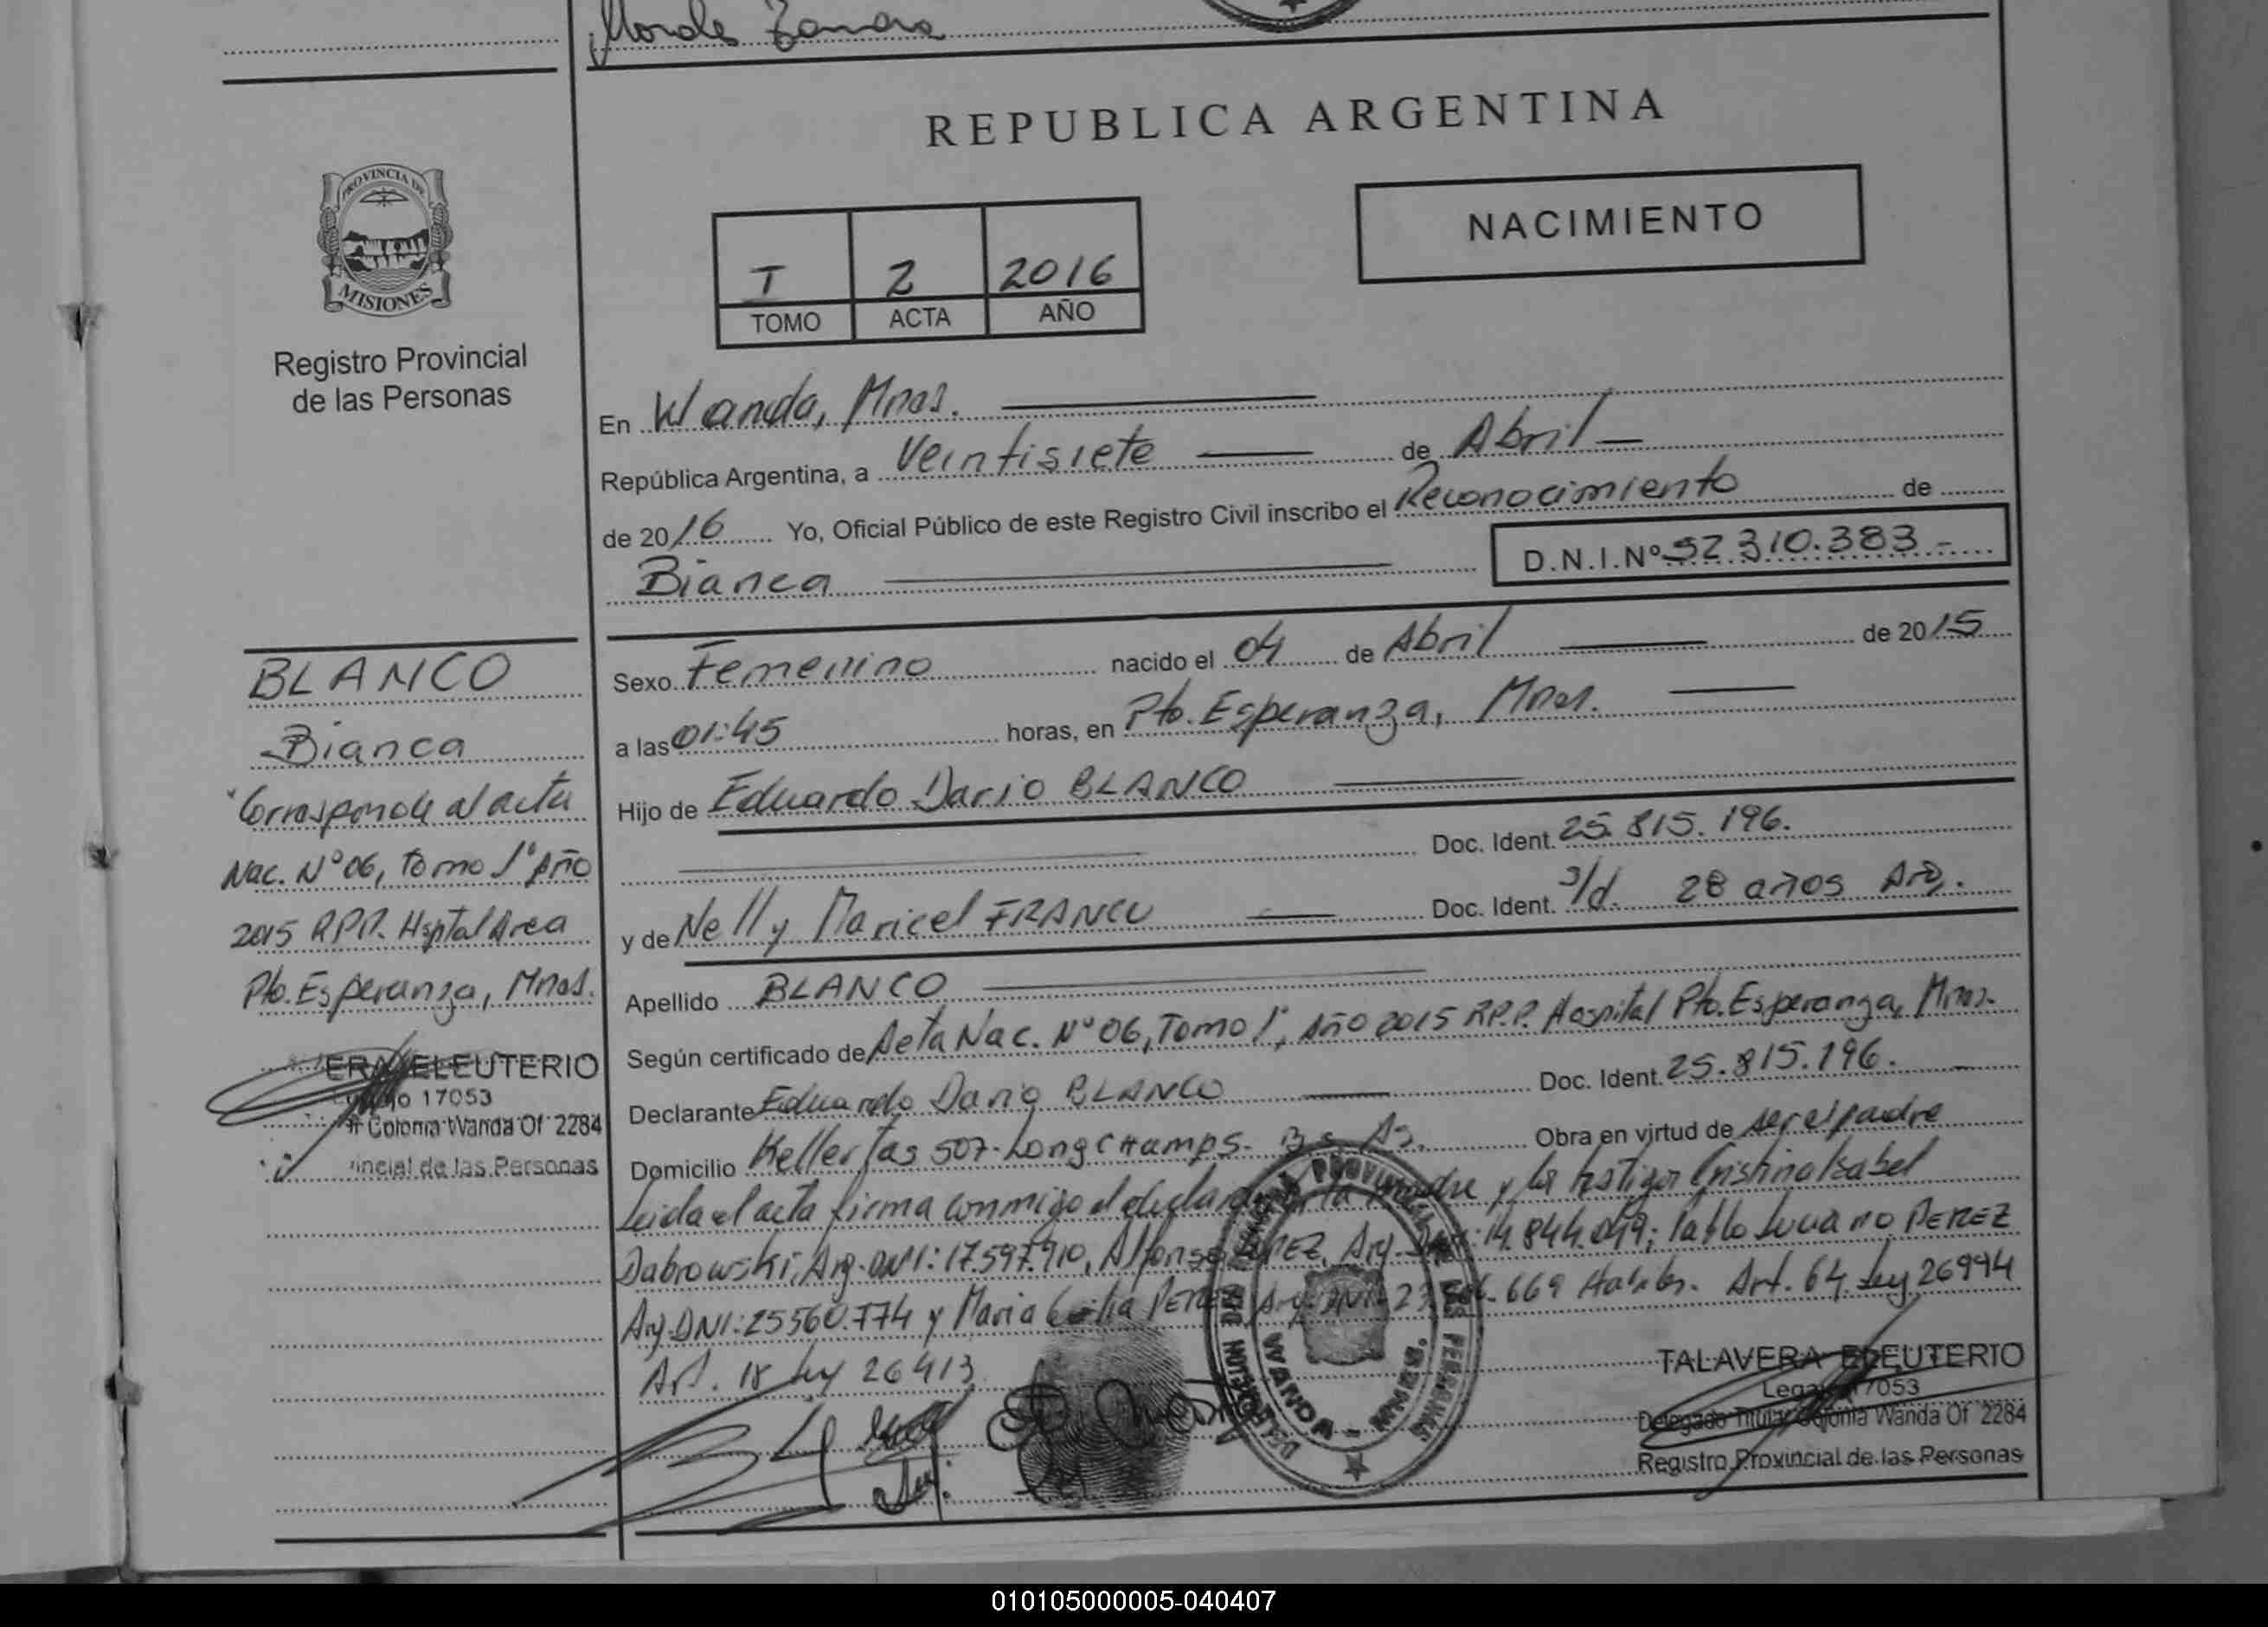 Morales Zamora
REPUBLICA ARGENTINA
PROVINCIA DE
MISIONES
Registro Provincial
de las Personas
NACIMIENTO
I 2 2016
TOMO ACTA AÑO
En Wanda, Mnes.
República Argentina, a Veintisiete de Abril
de 2016 Yo, Oficial Público de este Registro Civil inscribo el Reconocimiento de
Bianca D.N.I.Nº 52.310.383-
BLANCO
Bianca
Corresponde al acta
Nac. N°06, tomo 1° Año
2015 RPP. Hsptal Area
Pto. Esperanza, Mnes.
ELEUTERIO
17053
Colonia Wanda Of 2284
de las Personas
Sexo Femenino nacido el 04 de Abril de 2015
a las 01:45 horas, en Pto. Esperanza, Mnes.
Hijo de Eduardo Dario BLANCO
Doc. Ident. 25.815.196.
y de Nelly Maricel FRANCO Doc. Ident. s/d. 28 años Arg.
Apellido BLANCO
Según certificado de Acta Nac. N°06, Tomo 1°, Año 2015 RP.P. Hospital Pto. Esperanza, Mnes.
Declarante Eduardo Dario BLANCO Doc. Ident. 25.815.196.
Domicilio 507-LongCHamps. Bs As. Obra en virtud de ser el padre
Leida el acta firma conmigo el la madre y los testigos Cristina Isabel
Dabrowski, Arg. DNI: 17.597.910, Alfonso Arg. 14.844.049; Pablo Luciano PEREZ
Arg. DNI: 25560.774 y Maria PEREZ Arg. DNI 669 Art. 64 Ley 26994
Art. 18 Ley 26413
WANDA - MNES.
TALAVERA ELEUTERIO
Legajo 17053
Delegado Titular Colonia Wanda Of 2284
Registro Provincial de las Personas
010105000005-040407